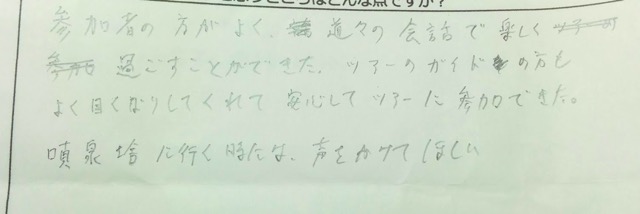 はどんな点ですか？
参加者の方がよく、道々の会話で楽しく
過ごすことができた。ツアーのガイドの方も
よく目くばりしてくれて安心してツアーに参加できた。
噴泉塔に行く時には、声をかけてほしい